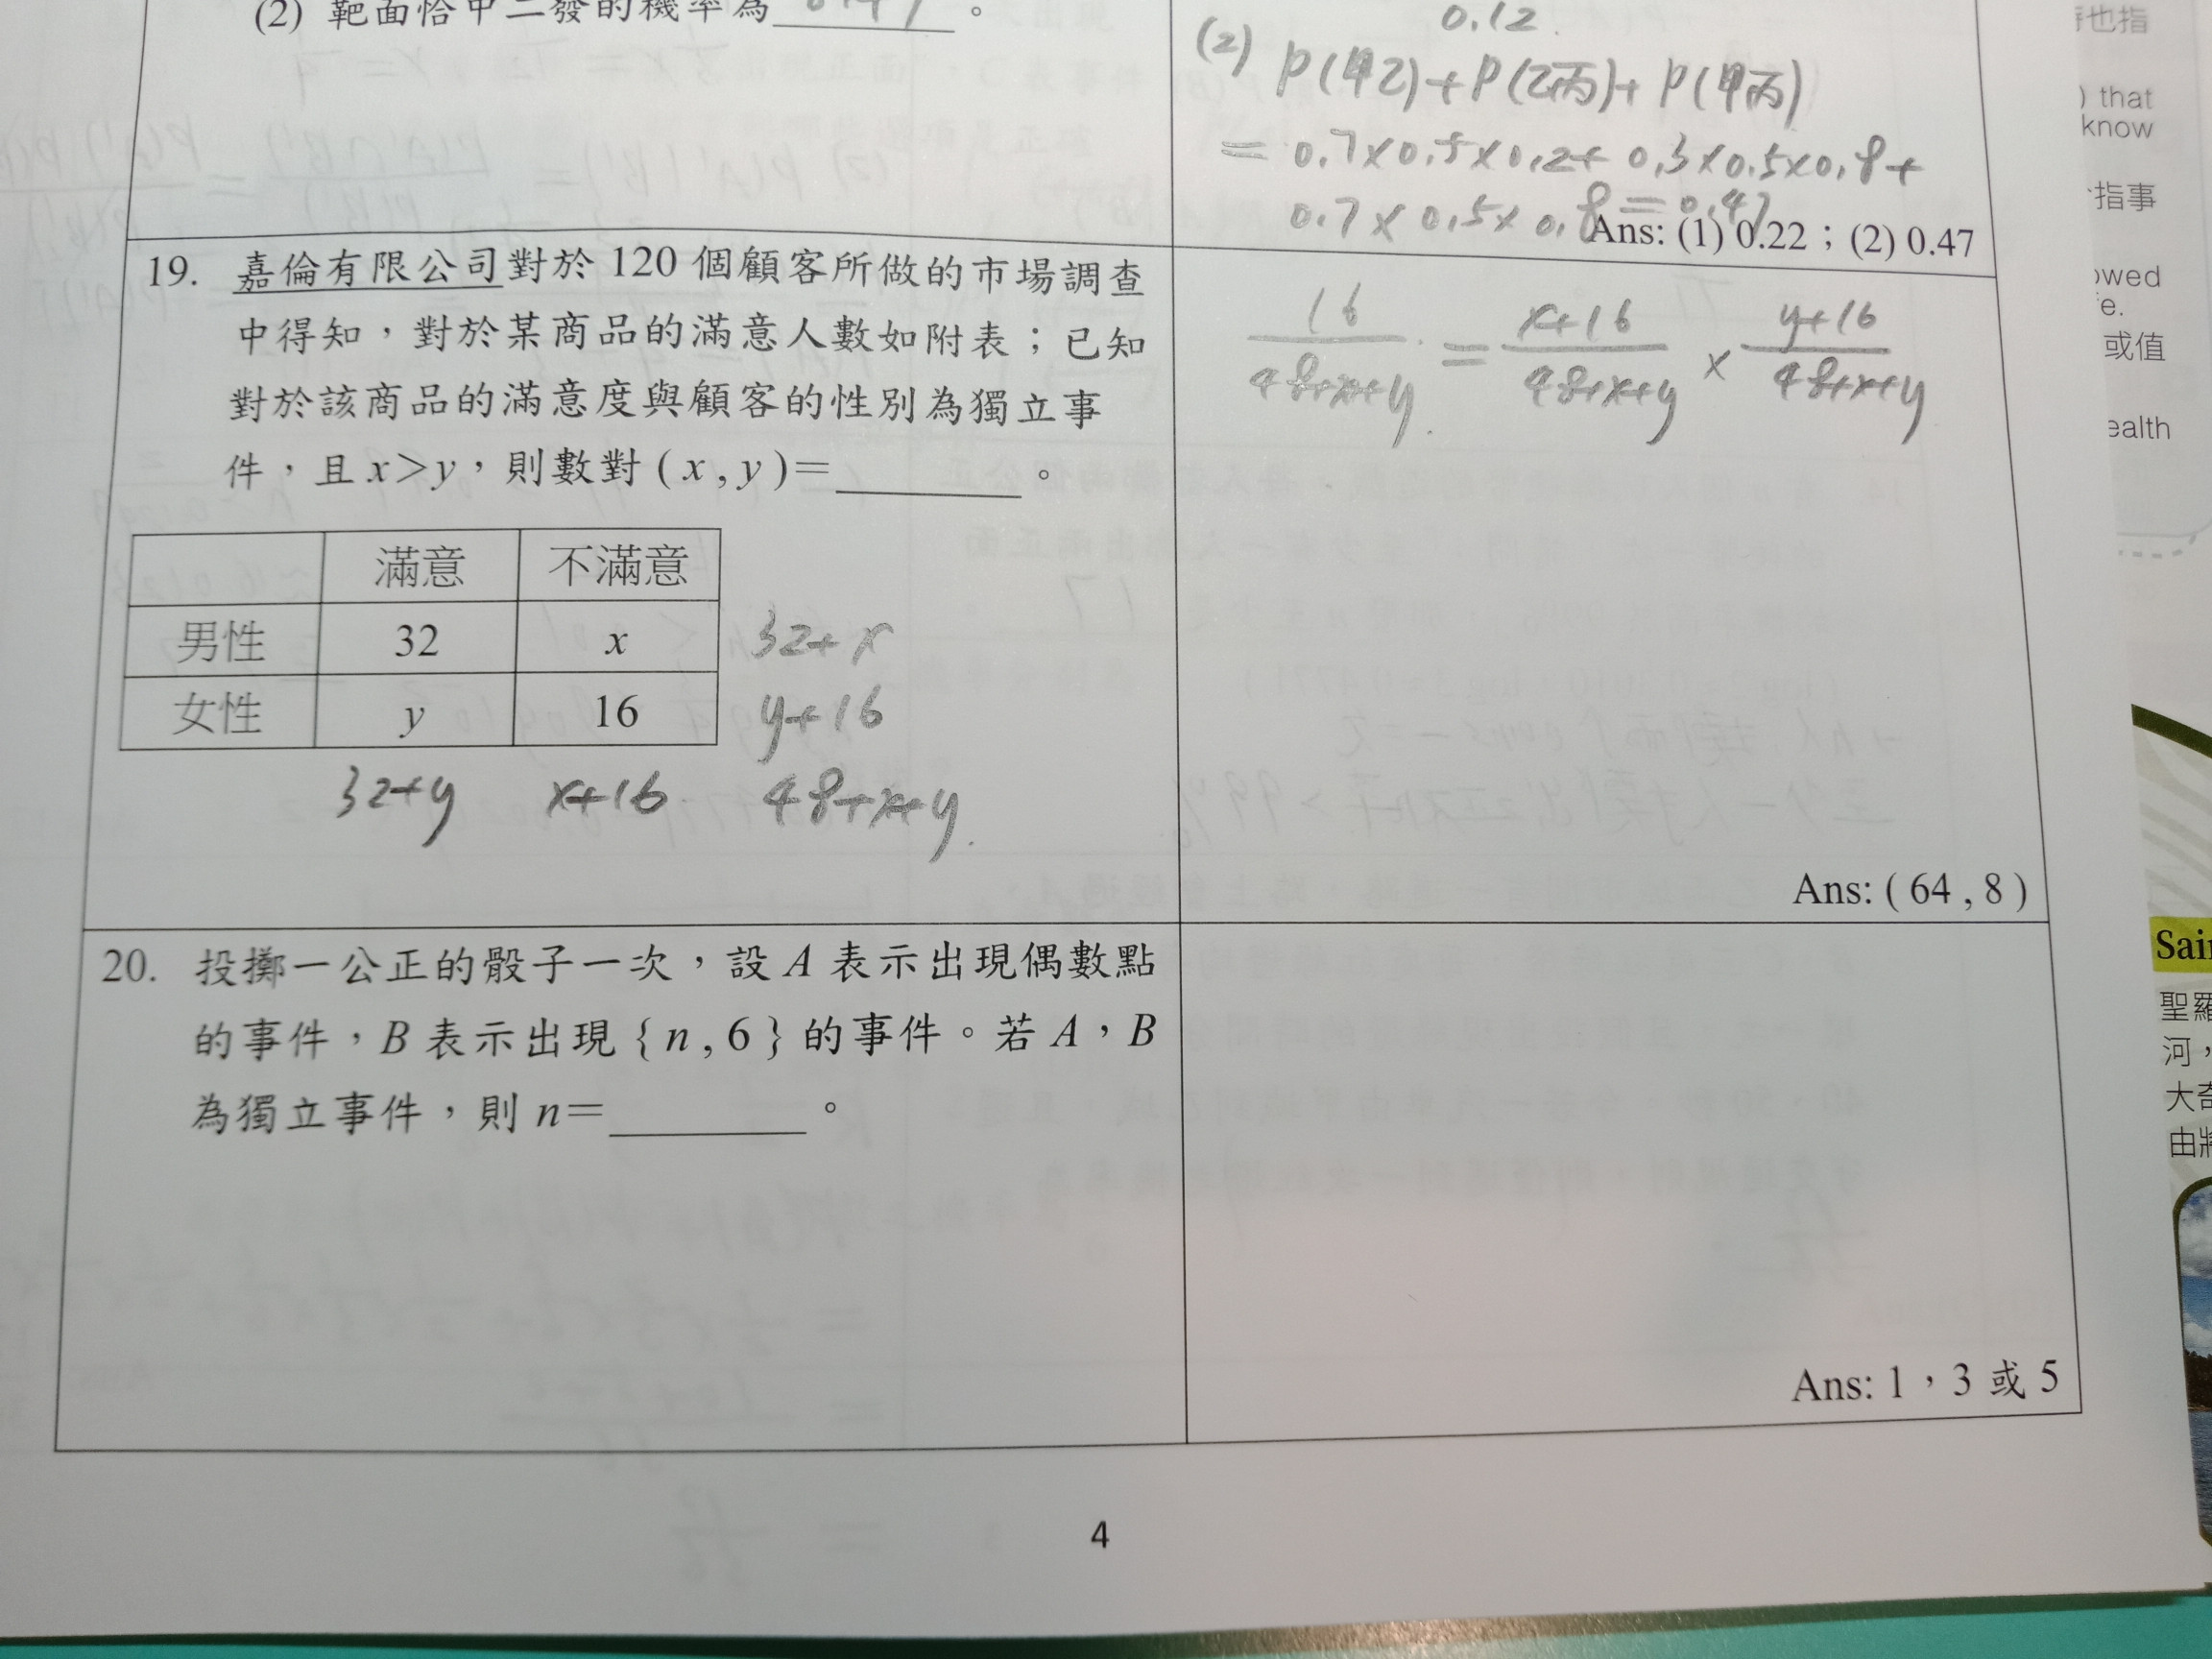 (2) 靶面恰中二發的機率為 0.47 。
0.12
(2) P(甲乙)+P(乙丙)+P(甲丙)
= 0.7×0.5×0.2+ 0.3×0.5×0.8+
0.7×0.5×0.8=0.47
Ans: (1) 0.22；(2) 0.47
19. 嘉倫有限公司對於 120 個顧客所做的市場調查
中得知，對於某商品的滿意人數如附表；已知
對於該商品的滿意度與顧客的性別為獨立事
件，且 x>y，則數對 ( x , y )=______。
滿意 不滿意
男性 32 x 32+x
女性 y 16 y+16
32+y x+16 48+x+y
16/48+x+y = x+16/48+x+y × y+16/48+x+y
Ans: ( 64 , 8 )
20. 投擲一公正的骰子一次，設 A 表示出現偶數點
的事件，B 表示出現 { n , 6 } 的事件。若 A，B
為獨立事件，則 n=______。
Ans: 1，3 或 5
4
也指
) that
know
指事
owed
e.
或值
ealth
Sai
聖羅
河，
大奇
由將